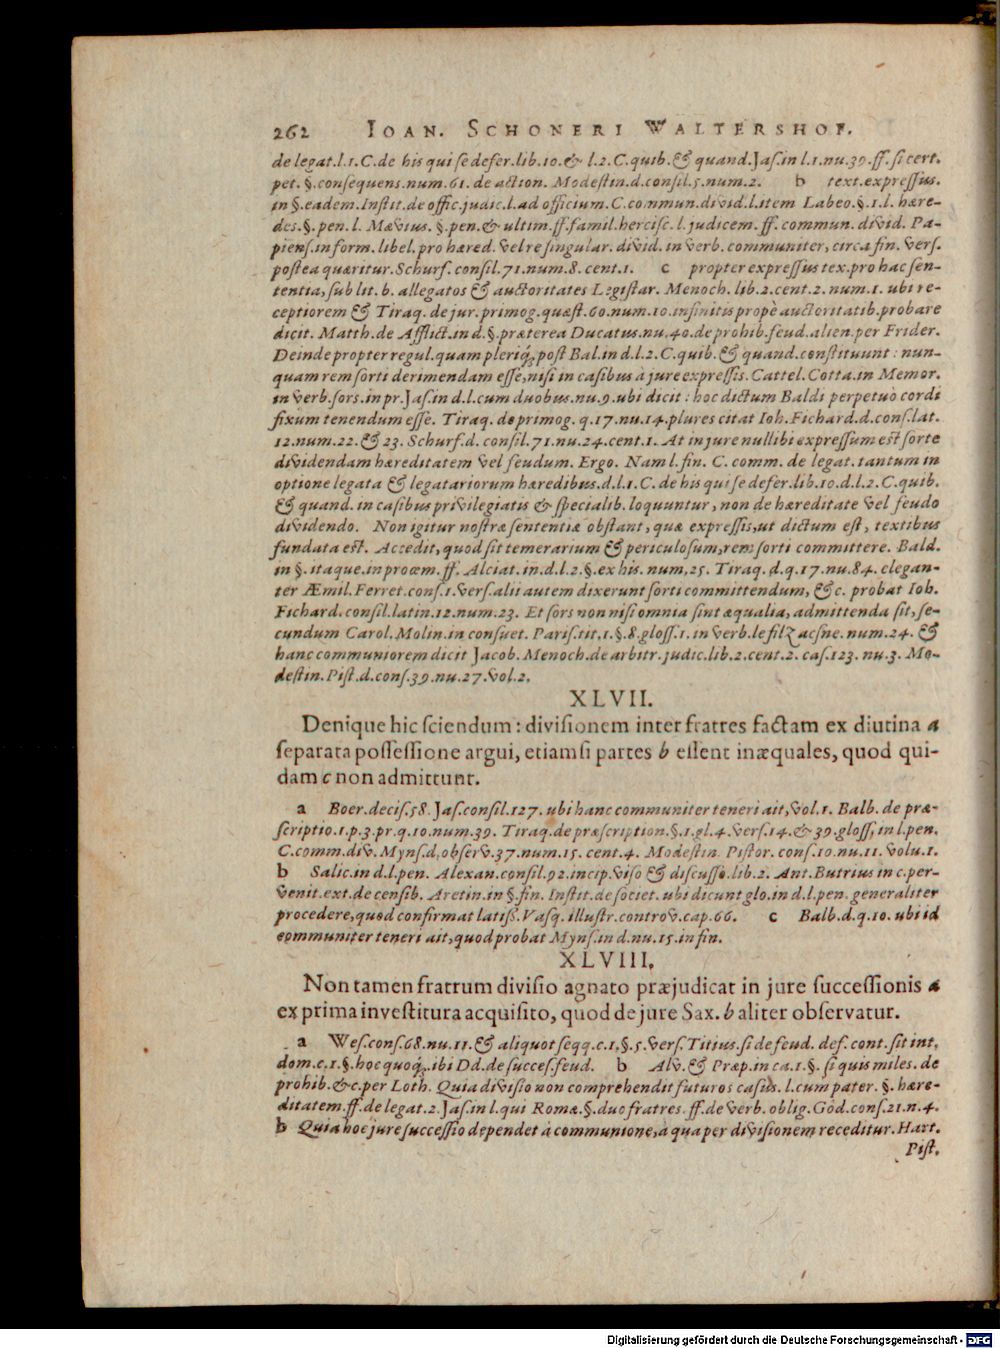 262 IOAN. SCHONERI WALTERSHOF.
de legat.l.1.C.de his qui se defer.lib.10.& l.2.C.quib.& quand.Jas.in l.1.nu.39.ff.si cert.
pet.§.consequens.num.61.de action. Modestin.d.consil.5.num.2. b text.expressus.
in §.eadem.Instit.de offic.judic.l.ad officium.C.commun.divid.l.item Labeo.§.1.l. hære-
des.§.pen.l. Mævius. §.pen.& ultim.ff.famil.hercisc.l.judicem.ff. commun. divid. Pa-
piens.in form.libel.pro hæred. vel re singular. divid. in verb. communiter, circa fin. vers.
postea quæritur.Schurf.consil.71.num.8.cent.1. c propter expressus tex.pro hac sen-
tentia, sub lit. b. allegatos & auctoritates Legistar. Menoch. lib.2.cent.2.num.1. ubi re-
ceptiorem & Tiraq.de jur.primog.quæst.60.num.10.infinitis propè auctoritatib.probare
dicit. Matth.de Afflict.in d.§.præterea Ducatus.nu.40.de prohib.feud.alien.per Frider.
Deinde propter regul.quam pleriq; post Bal.in d.l.2.C.quib.& quand.constituunt: nun-
quam rem sorti derimendam esse, nisi in casibus à jure expressis. Cattel. Cotta.in Memor.
in verb.sors.in pr.Jas.in d.l.cum duobus.nu.9.ubi dicit: hoc dictum Baldi perpetuò cordi
fixum tenendum esse. Tiraq. de primog. q.17.nu.14.plures citat Ioh.Fichard.d.cons.lat.
12.num.22.& 23. Schurf.d. consil.71.nu.24.cent.1. At in jure nullibi expressum est sorte
dividendam hæreditatem vel feudum. Ergo. Nam l.fin. C. comm. de legat.tantum in
optione legata & legatariorum hæredibus.d.l.1.C.de his qui se defer.lib.10.d.l.2.C.quib.
& quand. in casibus privilegiatis & specialib. loquuntur, non de hæreditate vel feudo
dividendo. Non igitur nostræ sententiæ obstant, quæ expressis, ut dictum est, textibus
fundata est. Accedit, quod sit temerarium & periculosum, rem sorti committere. Bald.
in §.itaque.in proœm.ff. Alciat.in.d.l.2.§.ex his.num,25. Tiraq.d.q.17.nu.84. elegan-
ter Æmil.Ferret.cons.1.vers.alii autem dixerunt sorti committendum, &c. probat Ioh.
Fichard.consil.latin.12.num.23. Et sors non nisi omnia sint æqualia, admittenda sit, se-
cundum Carol.Molin.in consuet. Paris.tit.1.§.8.gloss.1. in verb.le filz acsne.num.24. &
hanc communiorem dicit Jacob. Menoch.de arbitr.judic.lib.2.cent.2. cas.123. nu.3. Mo-
destin.Pist.d.cons.39.nu.27.vol.2.
XLVII.
Denique hic sciendum: divisionem inter fratres factam ex diutina a
separata possessione argui, etiamsi partes b essent inæquales, quod qui-
dam c non admittunt.
a Boer.decis.58.Jas.consil.127.ubi hanc communiter teneri ait, vol.1. Balb. de præ-
scriptio.1.p.3.pr.q.10.num.39. Tiraq.de præscription.§.1.gl.4.vers.14.& 39.gloss, in l.pen.
C.comm.div.Myns.d,observ.37.num.15. cent.4. Modestin. Pistor. cons.10.nu.11. volu.1.
b Salic.in d.l.pen. Alexan.consil.92.incip.viso & discusso.lib.2. Ant.Butrius in c.per-
venit.ext.de censib. Aretin.in §.fin. Instit.de societ. ubi dicunt glo.in d.l.pen.generaliter
procedere, quod confirmat latiss. Vasq.illustr.controv.cap.66. c Balb.d.q.10.ubi id
communiter teneri ait, quod probat Myns.in d.nu.15.in fin.
XLVIII.
Non tamen fratrum divisio agnato præjudicat in jure successionis a
ex prima investitura acquisito, quod de jure Sax. b aliter observatur.
a Wes.cons.68.nu.11.& aliquot seqq.c.1.§.5.vers.Titius.si de feud. def. cont.sit int.
dom.c.1.§.hoc quoq;.ibi Dd.de succes.feud. b Alv.& Præp.in ca.1.§. si quis miles. de
prohib.&c.per Loth. Quia divisio non comprehendit futuros casus.l.cum pater. §. hære-
ditatem.ff.de legat.2.Jas.in l.qui Romæ.§.duo fratres.ff.de verb. oblig.God.cons.21.n.4.
b Quia hoc jure successio dependet à communione, à qua per divisionem receditur.Hart.
Pist.
Digitalisierung gefördert durch die Deutsche Forschungsgemeinschaft - DFG